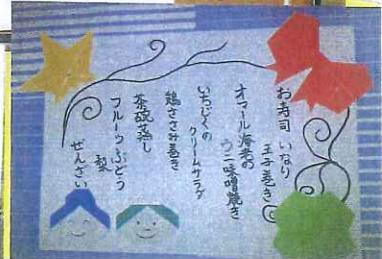 お寿司 いなり
玉子巻き
オマール海老の
ウニ味噌焼き
いちじくの
クリームサラダ
鶏ささみ巻き
茶碗蒸し
フルーツ ぶどう
梨
ぜんざい